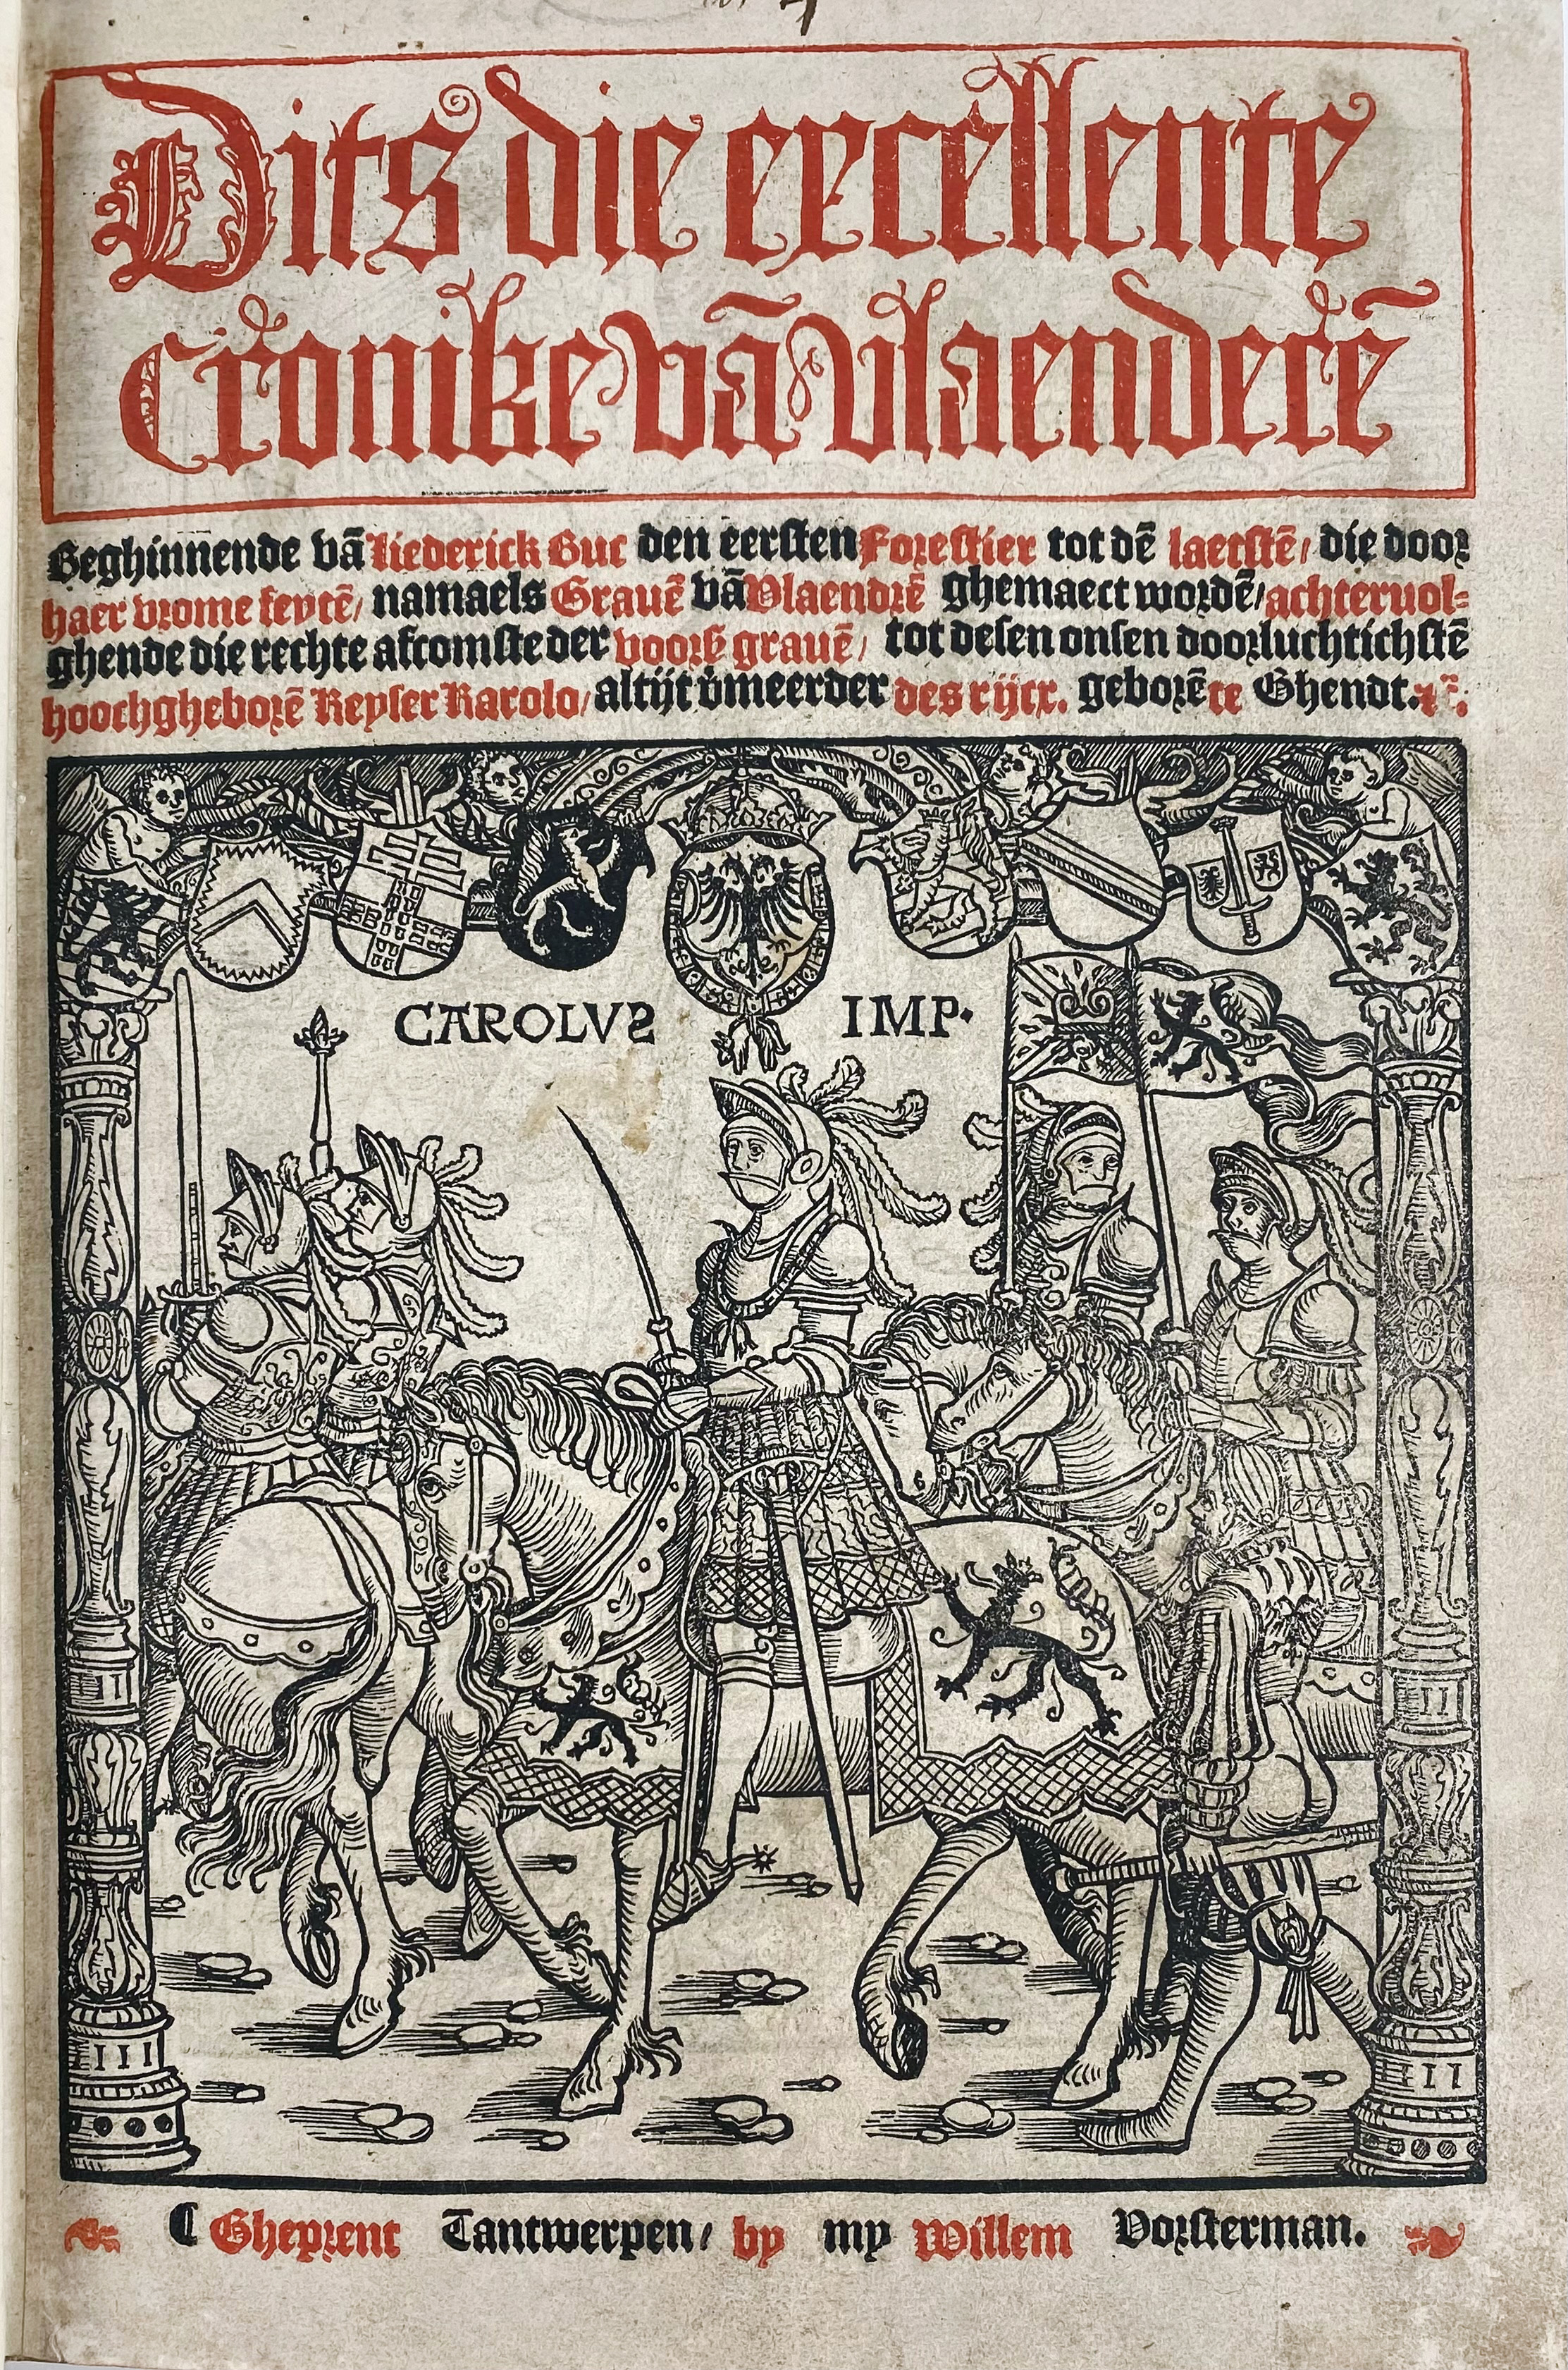 Dits die excellente
Cronike vā Vlaenderē
Beghinnende vā Liederick Buc den eersten Forestier tot dē laetstē / die door
haer vrome feytē / namaels Grauē vā Vlaendrē ghemaect wordē / achteruol-
ghende die rechte afcomste der voors grauē / tot desen onsen doorluchtichstē
hoochgheborē Keyser Karolo / altijt vmeerder des rijcx. geborē te Ghendt.
CAROLVS IMP.
II
II
III
III
Gheprent Tantwerpen / by my Willem Vorsterman.